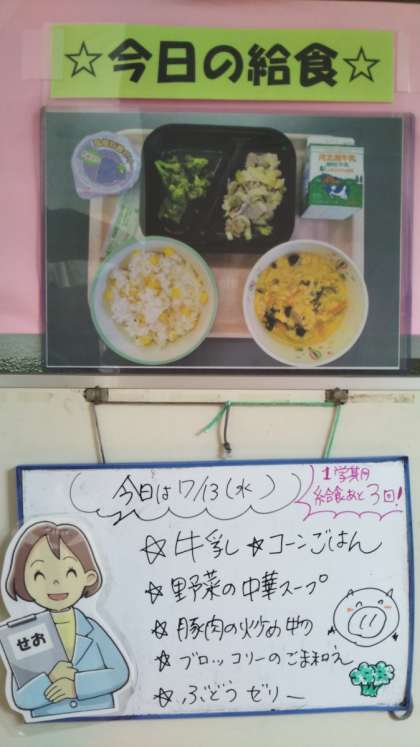 ☆今日の給食☆
今日は7/13(水)
1学期 給食あと3回!
☆牛乳 ☆コーンごはん
☆野菜の中華スープ
☆豚肉の炒め物
☆ブロッコリーのごま和え
☆ぶどうゼリー
せお